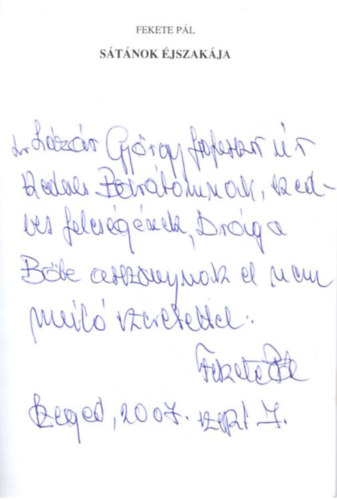 FEKETE PÁL
SÁTÁNOK ÉJSZAKÁJA
dr Lázár György professzor úr
kedves Barátomnak, ked-
ves feleségének, Drága
Böbe asszonynak el nem
múló szeretettel:
Fekete Pál
Szeged, 2007. szept 7.